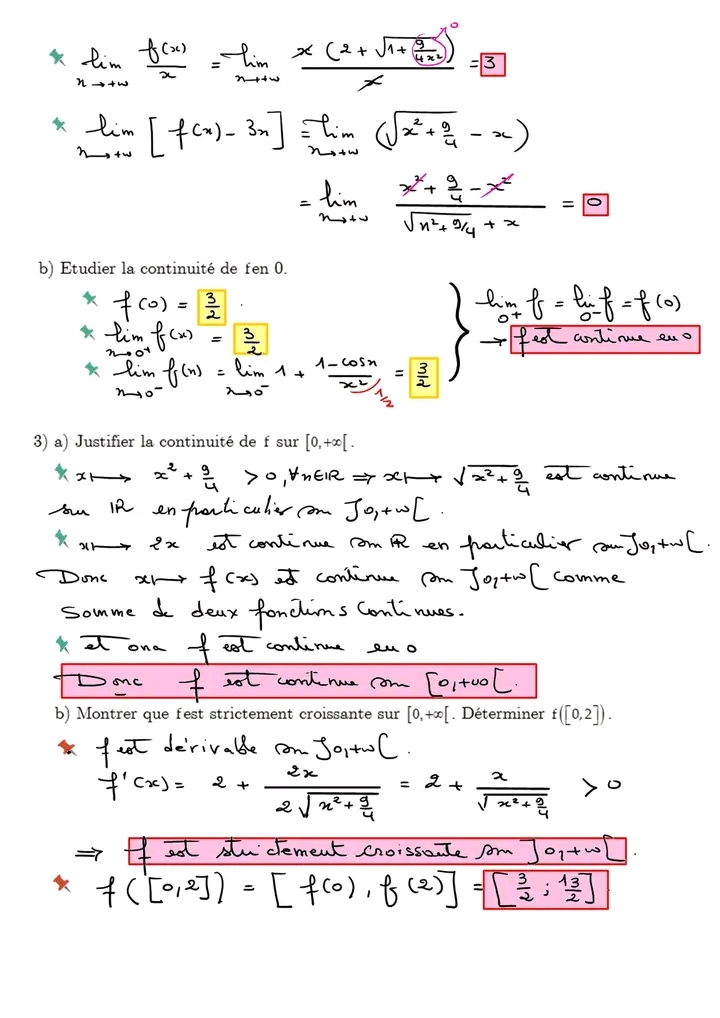 lim f(x)/x = lim x(2 + √(1 + 9/4x²))/x = 3
n→+∞ n→+∞
0
lim [f(n) - 3n] = lim (√(x² + 9/4) - x)
n→+∞ n→+∞
= lim (x² + 9/4 - x²)/(√(n² + 9/4) + x) = 0
n→+∞
b) Etudier la continuité de fen 0.
f(0) = 3/2 .
lim f(x) = 3/2
n→0⁺
lim f(n) = lim 1 + (1-cosn)/x² = 3/2
n→0⁻ n→0⁻ 1/2
lim f = lim f = f(0)
0⁺ 0⁻
→ f est continue en 0
3) a) Justifier la continuité de f sur [0,+∞[ .
x ⟼ x² + 9/4 > 0, ∀n∈IR ⇒ x ⟼ √(x² + 9/4) est continue
sur IR en particulier sur ]0,+∞[.
x ⟼ 2x est continue sur IR en particulier sur ]0,+∞[.
Donc x ⟼ f(x) est continue sur ]0,+∞[ comme
Somme de deux fonctions continues.
et ona f est continue en 0
Donc f est continue sur [0,+∞[.
b) Montrer que f est strictement croissante sur [0,+∞[. Déterminer f([0,2]).
f est dérivable sur ]0,+∞[.
f'(x) = 2 + 2x/(2√(n² + 9/4)) = 2 + x/√(x² + 9/4) > 0
⇒ f est strictement croissante sur ]0,+∞[.
f([0,2]) = [f(0), f(2)] = [3/2 ; 13/2]